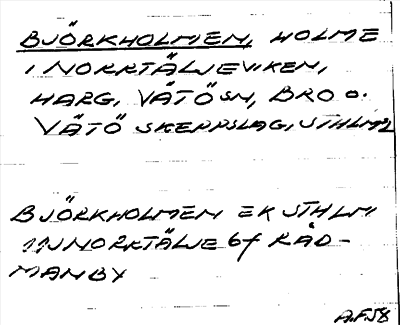 BJÖRKHOLMEN, HOLME
I NORRTÄLJEVIKEN,
HARG, VÄTÖ SN, BRO O.
VÄTÖ SKEPPSLAG, STHLMS
BJÖRKHOLMEN EK STHLM
NORRTÄLJE bf RÅD-
MANBY
A.F.58